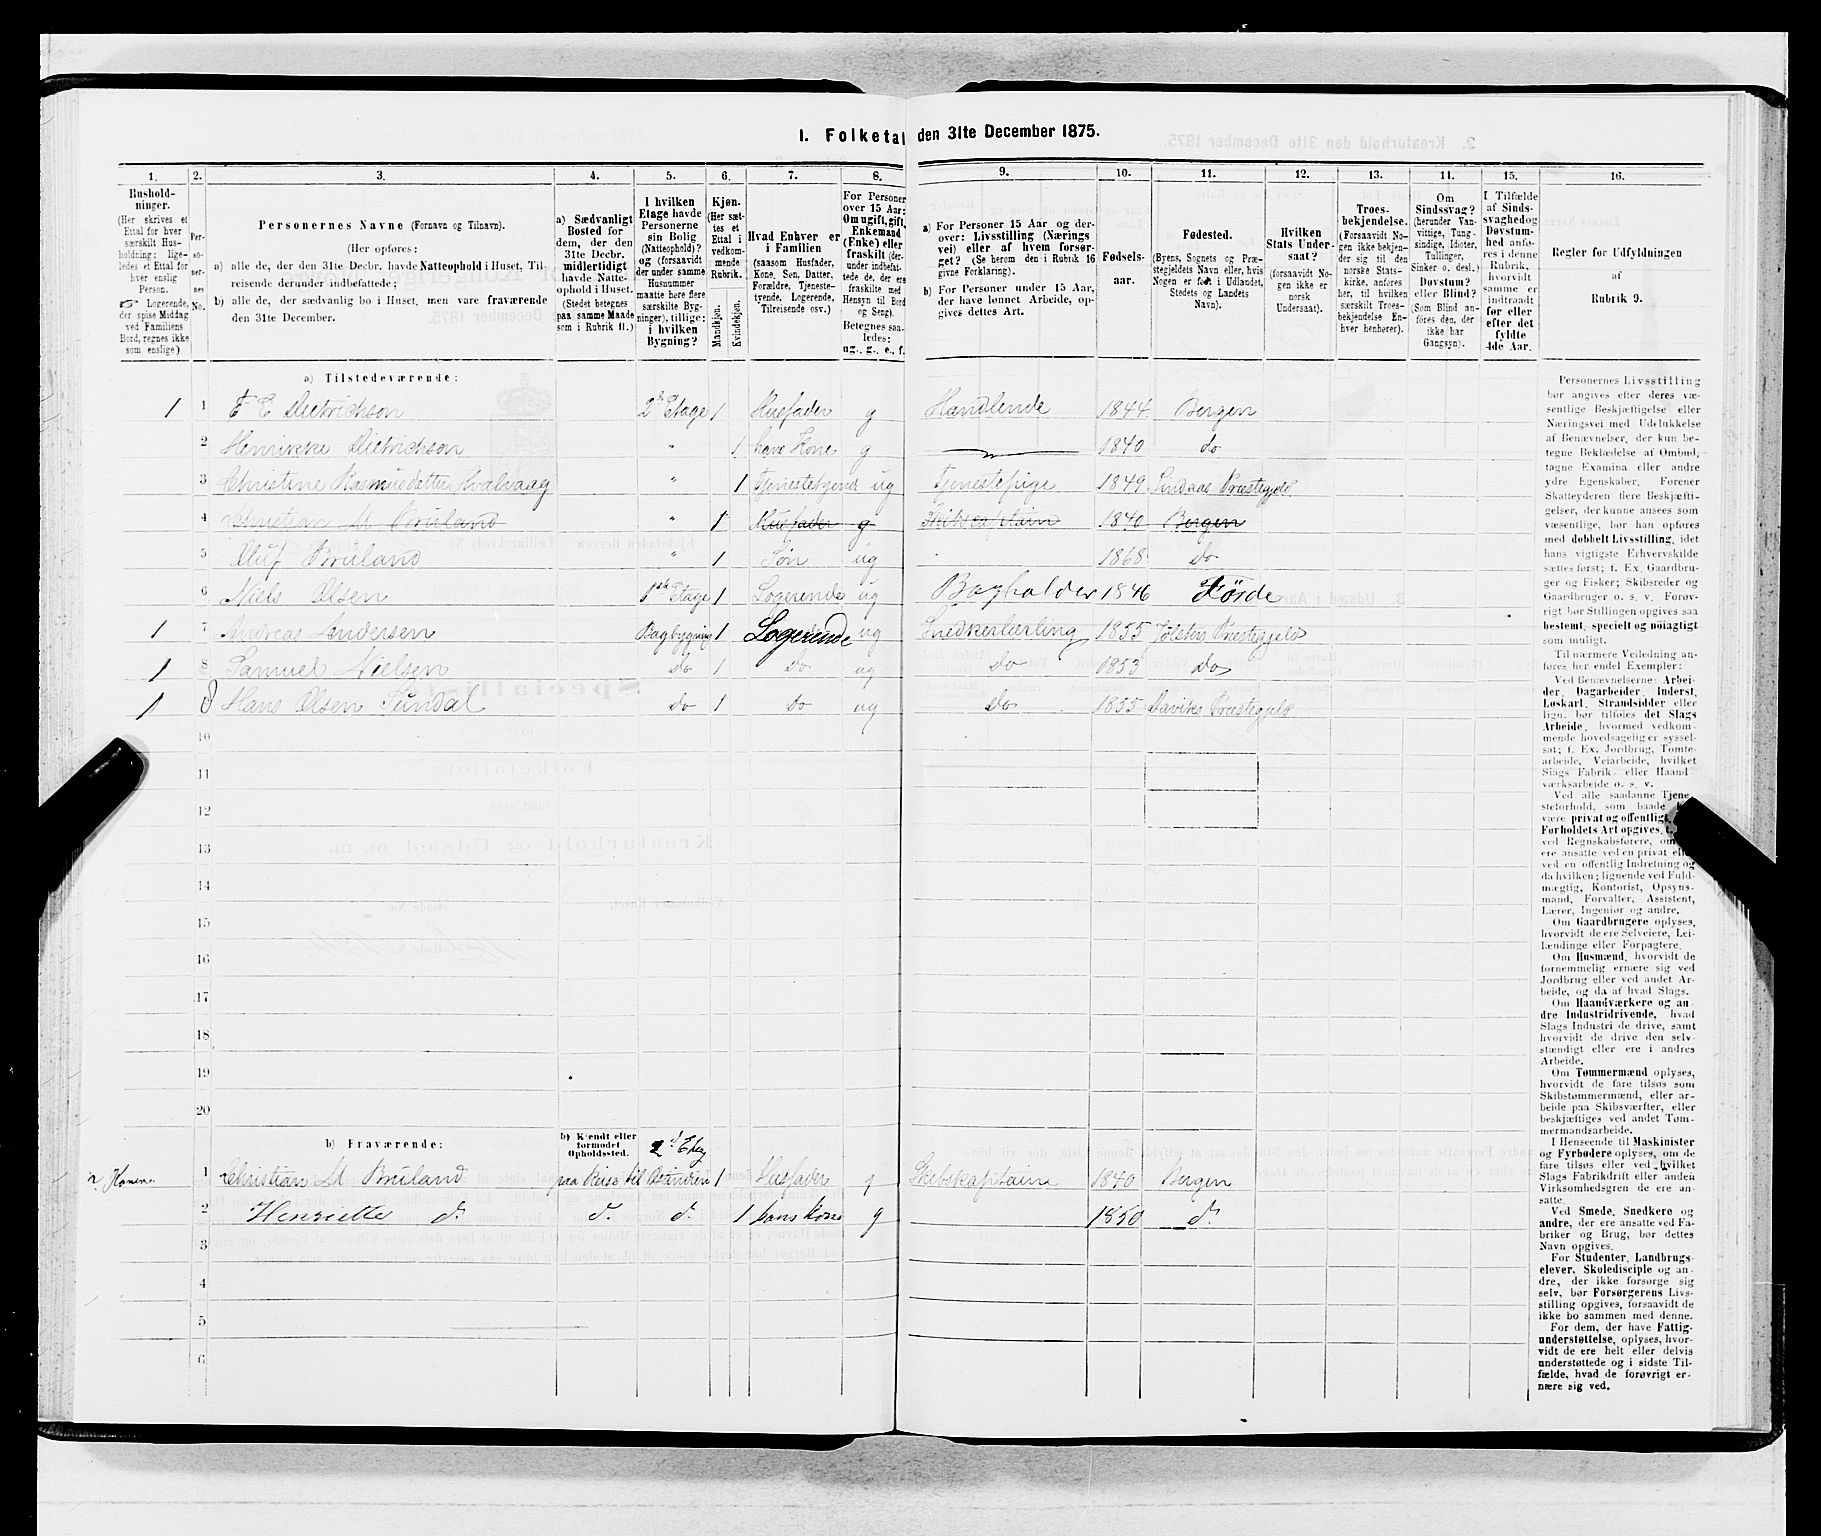 1. Folketal den 31te December 1875.
1. 2. 3. 4. 5. 6. 7. 8. 9. 10. 11. 12. 13. 14. 15. 16.
Husholdninger.
(Her skrives et Ettal for hver særskilt Husholdning; ligeledes et Ettal for hver enslig Person.
☞ Logerende, der spise Middag ved Familiens Bord, regnes ikke som enslige)
Personernes No.
Personernes Navne (Fornavn og Tilnavn).
(Her opføres:
a) alle de, der den 31te Decbr. havde Natteophold i Huset, Tilreisende derunder indbefattede;
b) alle de, der sædvanlig bo i Huset, men vare fraværende den 31te December.
a) Sædvanligt Bosted for dem, der den 31te Decbr. midlertidigt havde Natteophold i Huset.
(Stedet betegnes paa samme Maade som i Rubrik 11.)
I hvilken Etage havde Personerne sin Bolig (Natteophold)? og (forsaavidt der under samme Husnummer maatte høre flere særskilte Bygninger), tillige: i hvilken Bygning?
Kjøn.
(Her sættes et Ettal i vedkommende Rubrik.
Mandkjøn.
Kvindekjøn.
Hvad Enhver er i Familien
(saasom Husfader, Kone, Søn, Datter, Forældre, Tjenestetyende, Logerende, Tilreisende osv.)
For Personer over 15 Aar: Om ugift, gift, Enkemand (Enke) eller fraskilt (derunder indbefattede de, der ere fraskilte med Hensyn til Bord og Seng).
Betegnes saaledes: ug., g., e., f.
a) For Personer 15 Aar og derover: Livsstilling (Næringsvei) eller af hvem forsørget? (Se herom den i Rubrik 16 givne Forklaring).
b) For Personer under 15 Aar, der have lønnet Arbeide, opgives dettes Art.
Fødselsaar.
Fødested.
(Byens, Sognets og Præstegjeldets Navn eller, hvis Nogen er født i Udlandet, Stedets og Landets Navn).
Hvilken Stats Undersaat?
(forsaavidt Nogen ikke er norsk Undersaat).
Troesbekjendelse.
(Forsaavidt Nogen ikke bekjender sig til den norske Statskirke, anføres her, til hvilken særskilt Troesbekjendelse Enhver henhører).
Om Sindssvag? (herunder Vanvittige, Tungsindige, Idioter, Tullinger, Sinker o. desl.) Døvstum? eller Blind? (Som Blind anføres den, der ikke har Gangsyn).
I Tilfælde af Sindssvaghed og Døvstumhed anføres i denne Rubrik, hvorvidt samme er indtraadt før eller efter det fyldte 4de Aar.
Regler for Udfyldningen af Rubrik 9.
a) Tilstedeværende:
1 1 F E Dietrichson 2den Etage 1 Husfader g Handlende 1844 Bergen
2 Henrikke Dietrichson " 1 hans Kone g 1840 do
3 Christine Rasmusdatter Hvalvaag " 1 Tjenestetyend ug Tjenestepige 1849 Lindaas Præstegjeld
4 Christian M Bruland " 1 Husfader g Skibscaptain 1840 Bergen
5 Oluf Bruland " 1 Søn ug 1868 do
6 Niels Olsen 1ste Etage 1 Logerende ug Bogholder 1846 Førde
1 7 Andreas Andersen Bagbygning 1 Logerende ug Snedkerlærling 1855 Jølster Præstegjeld
1 8 Samuel Nielsen do 1 do ug do 1853 do
1 Hans Olsen Sundal do 1 do ug do 1855 Davikes Præstegjeld
10
11
12
13
14
15
16
17
18
19
20
b) Fraværende:
b) Kjendt eller formodet Opholdssted.
2d Etag
1 Christian M Bruland paa Reise til 1 Husfader g Skibskaptain 1840 Bergen
2 Henriette d. d. d. 1 hans Kone g 1850 d.
3
4
5
6
Personernes Livsstilling
bør angives efter deres væ-
sentlige Beskjæftigelse eller
Næringsvei med Udelukkelse
af Benævnelser, der kun be-
tegne Beklædelse af Ombud,
tagne Examina eller andre
ydre Egenskaber. Forener
Skatteyderen flere Beskjæfti-
gelser, der kunne ansees som
væsentlige, bør han opføres
med dobbelt Livsstilling, idet
hans vigtigste Erhvervskilde
sættes først; f. Ex. Gaardbru-
ger og Fisker; Skibsreder og
Gaardbruger o. s. v. Forøv-
rigt bør Stillingen opgives saa
bestemt, specielt og nøiagtigt
som muligt.
Til nærmere Veiledning an-
føres her endel Exempler:
Ved Benævnelserne: Arbei-
der, Dagarbeider, Inderst,
Løskarl, Strandsidder eller
lign. bør tilføies det Slags
Arbeide, hvormed vedkom-
mende hovedsagelig er syssel-
sat; f. Ex. Jordbrug, Tomte-
arbeide, Veiarbeide, hvilket
Slags Fabrik- eller Haand-
værksarbeide o. s. v.
Ved alle saadanne Tjene-
steforhold, som baade
være private og offentlig,
Forholdets Art opgives,
ved Regnskabsførere, om
ere ansatte ved en privat eller
ved en offentlig Indretning og
da hvilken; lignende ved Fuld-
mægtig, Kontorist, Opsyns-
mand, Forvalter, Assistent,
Lærer, Ingeniør og andre.
Om Gaardbrugere oplyses,
hvorvidt de ere Selveiere, Lei-
lændinge eller Forpagtere.
Om Husmænd, hvorvidt de
fornemmelig ernære sig ved
Jordbrug eller ved andet Ar-
beide, og da af hvad Slags.
Om Haandværkere og an-
dre Industridrivende, hvad
Slags Industri de drive, samt
hvorvidt de drive den selv-
stændigt eller ere i andres
Arbeide.
Om Tømmermænd oplyses,
hvorvidt de fare tilsøs som
Skibstømmermænd, eller ar-
beide paa Skibsværfter, eller
beskjæftiges ved andet Tøm-
mermandsarbeide.
I Henseende til Maskinister
og Fyrbødere oplyses, om de
fare tilsøs eller ved hvilket
Slags Fabrikdrift eller anden
Virksomhedsgren de ere an-
satte.
Ved Smede, Snedkere og
andre, der ere ansatte ved Fa-
briker og Brug, bør dettes
Navn opgives.
For Studenter, Landbrugs-
elever, Skoledisciple og an-
dre, der ikke forsørge sig
selv, bør Forsørgerens Livs-
stilling opgives, forsaavidt de
ikke bo sammen med denne.
For dem, der have Fattig-
understøttelse, oplyses, hvor-
vidt de ere helt eller delvis
understøttede og i sidste Til-
fælde, hvad de forøvrigt er-
nære sig ved.